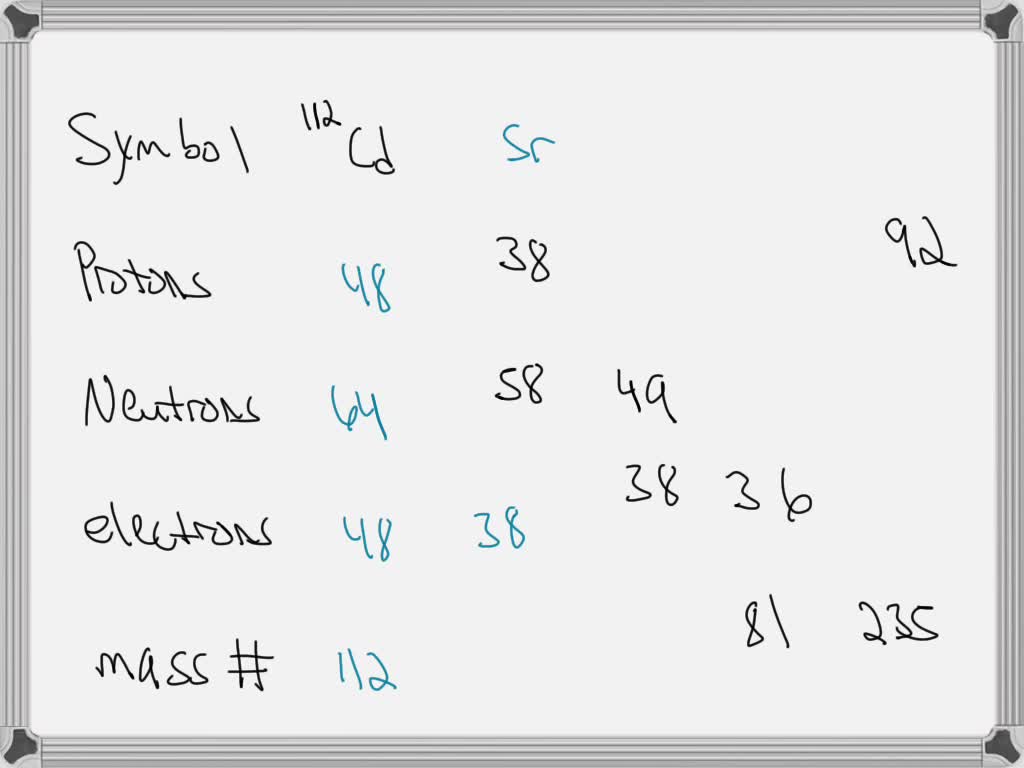 Symbol 112Cd Sr
Protons 48 38 92
Neutrons 64 58 49
electrons 48 38 38 36
mass # 112 81 235